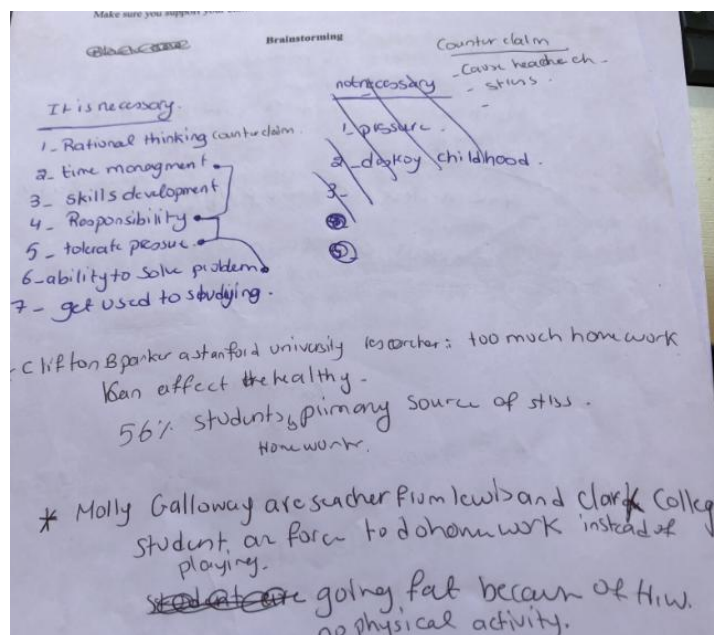 Make sure you support your
Brainstorming
Counter claim
- Cause headhe ch -
- stress.
-
It is necessary.
1 - Rational thinking counterclaim.
2 - time managment
3 - skills development
4 - Responsibility
5 - tolerate presure.
6 - ability to solve problem
7 - get used to studying.
not necessary
1 - pressure.
2 - destroy childhood.
3 -
- Clifton B parker a stanford university researcher: too much homework
can affect the healthy.
56% students primary source of stress.
Homework.
* Molly Galloway a reseacher from lewis and clark Colleg
student are force to do homework instead of
playing.
going fat because of H.W.
no physical activity.